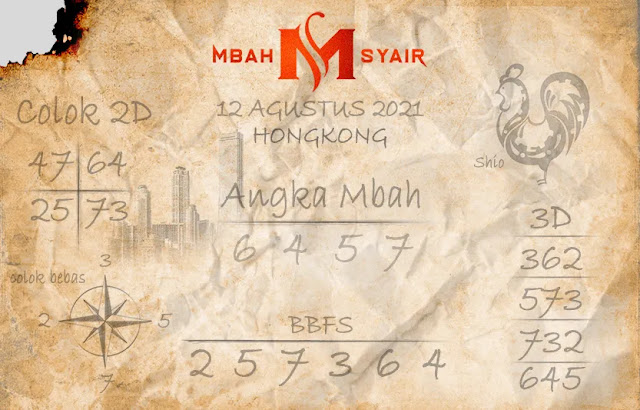 MBAH M SYAIR
12 AGUSTUS 2021
HONGKONG
Colok 2D
47 64
25 73
Shio
Angka Mbah
6 4 5 7
colok bebas
3
2 5
7
BBFS
2 5 7 3 6 4
3D
362
573
732
645